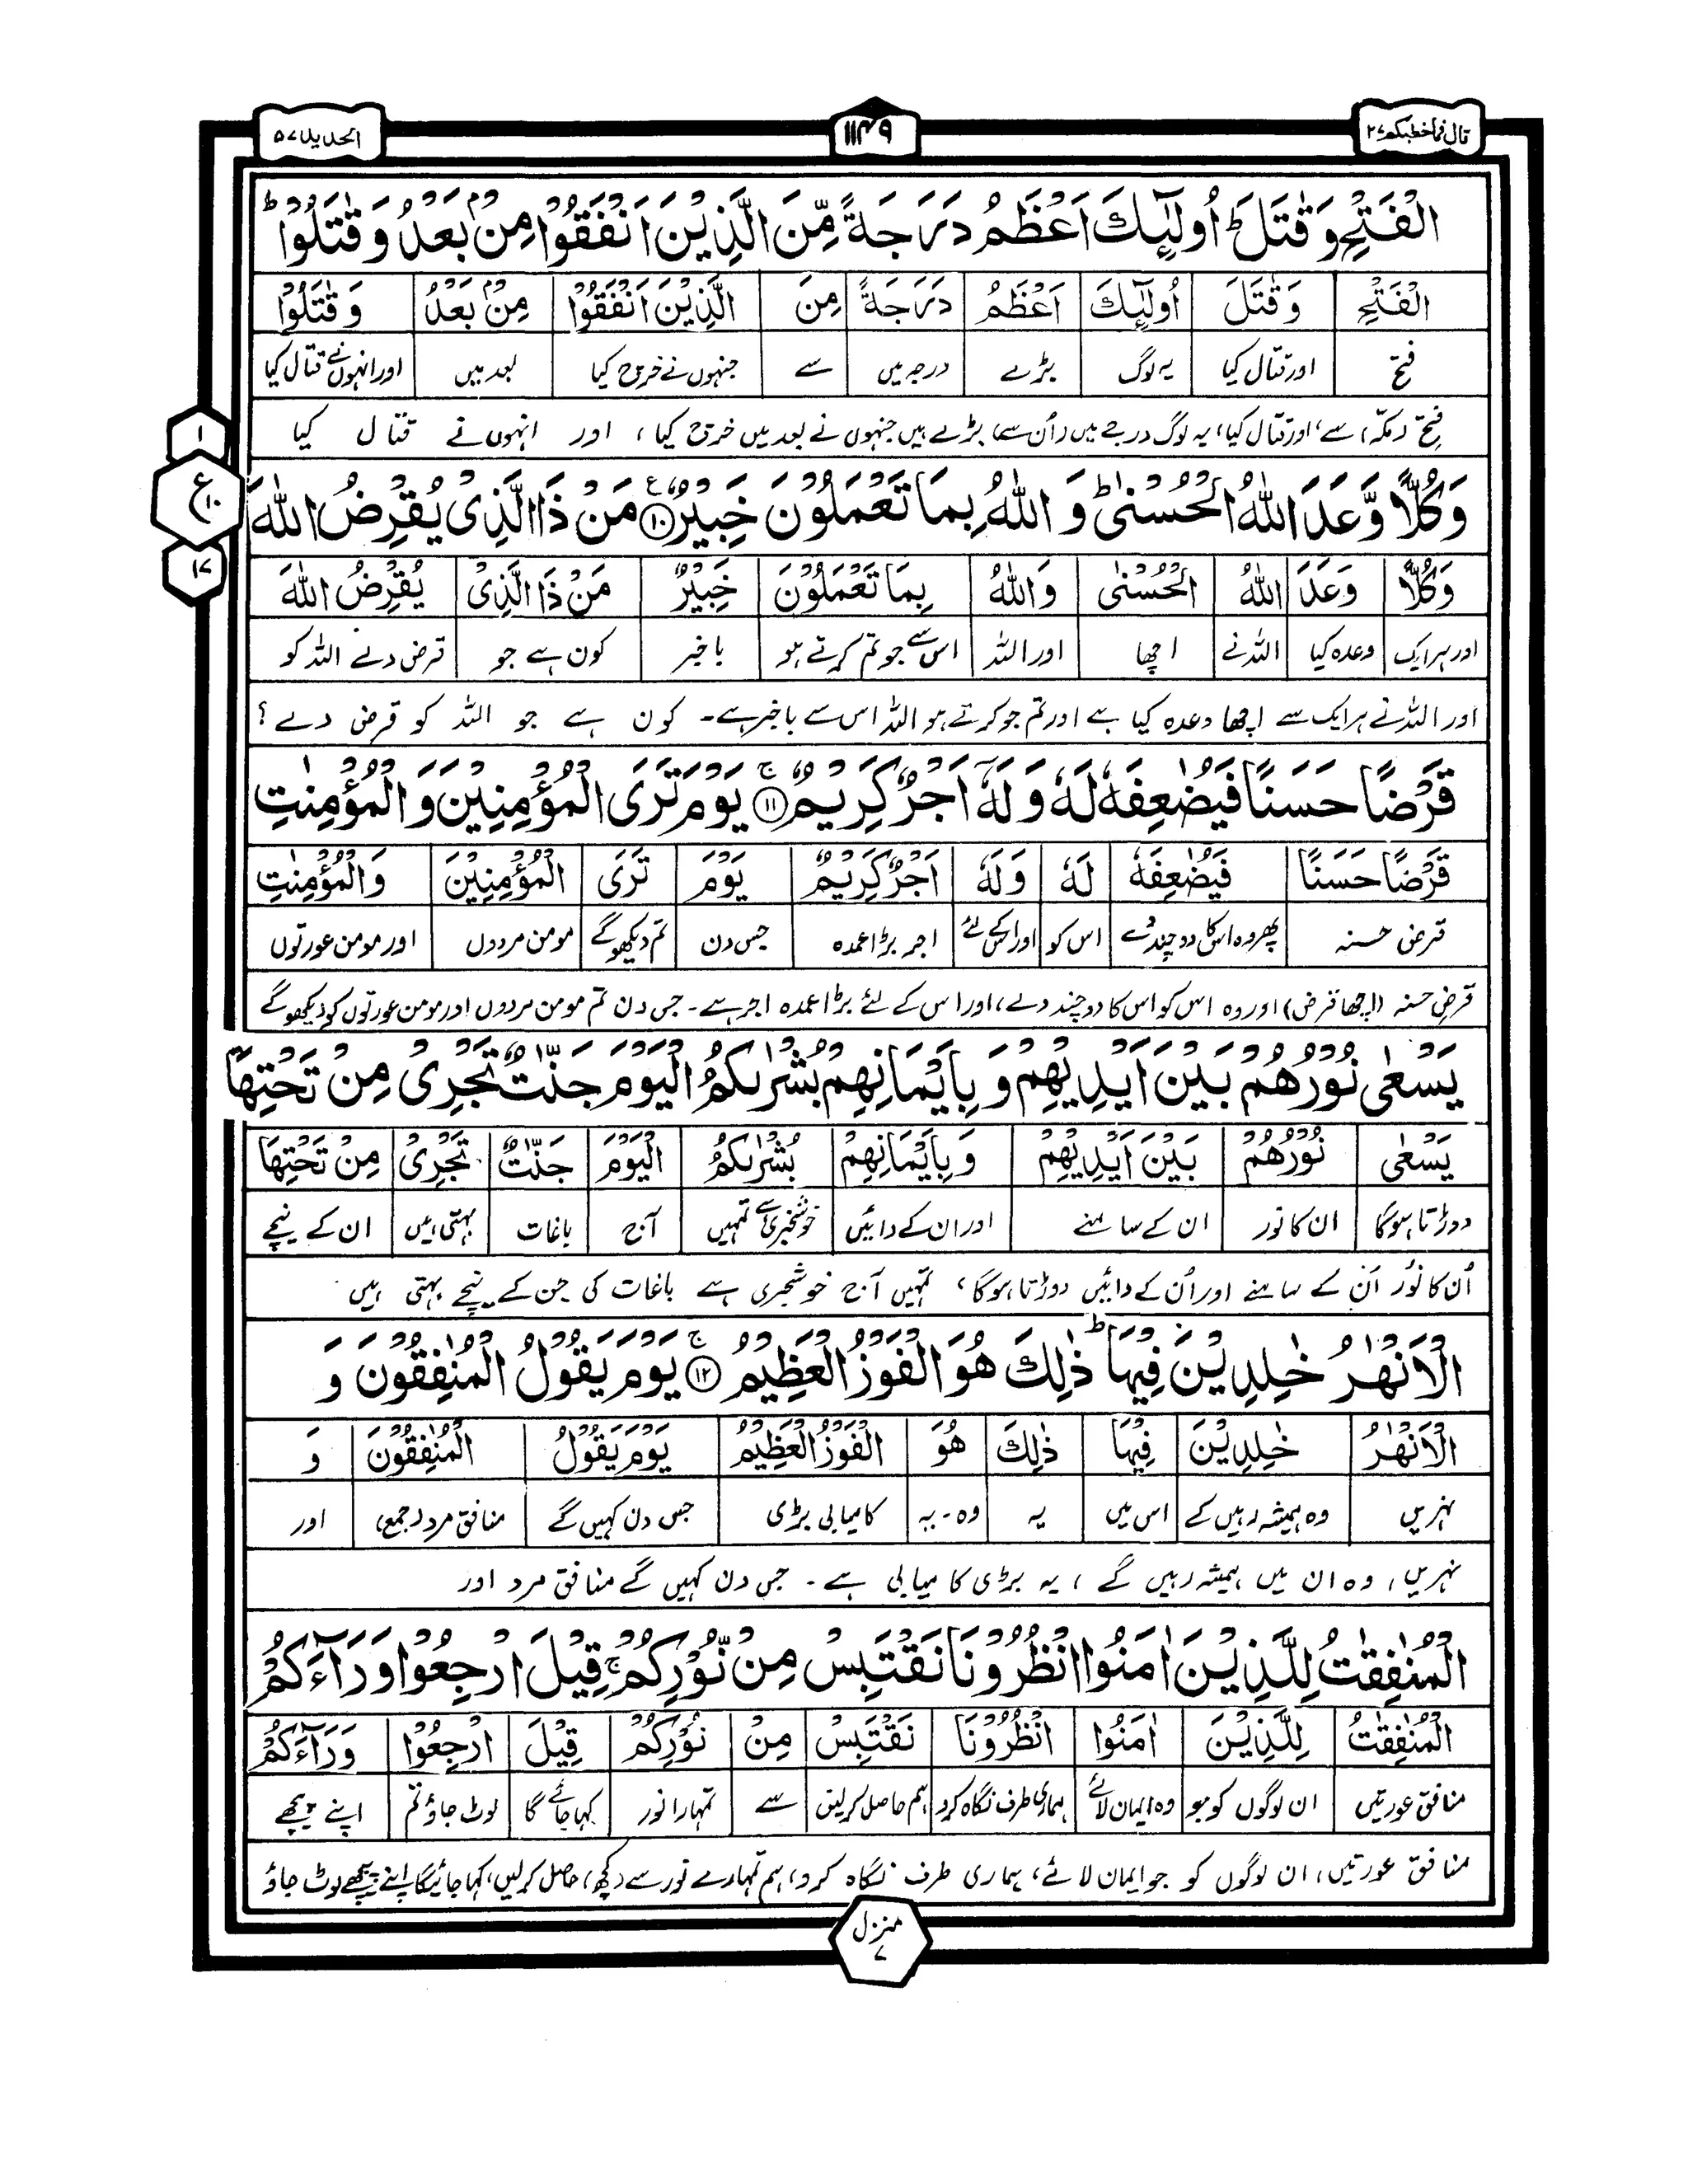 قال فما خطبکم ۲۷
۱۱۴۹
الحدید ۵۷
الْفَتْحِ وَ قٰتَلَ ؕ اُولٰٓئِكَ اَعْظَمُ دَرَجَةً مِّنَ الَّذِيْنَ اَنْفَقُوْا مِنْۢ بَعْدُ وَ قٰتَلُوْا ؕ
الْفَتْحِ وَ قٰتَلَ اُولٰٓئِكَ اَعْظَمُ دَرَجَةً مِنَ الَّذِيْنَ اَنْفَقُوْا مِنْۢ بَعْدُ وَ قٰتَلُوْا
فتح اور قتال کیا یہ لوگ بڑے درجہ میں سے جنہوں نے خرچ کیا بعد میں اور انہوں نے قتال کیا
فتح (مکہ) سے، اور قتال کیا، یہ لوگ درجے میں (اُن سے) بڑے ہیں جنہوں نے بعد میں خرچ کیا، اور انہوں نے قتال کیا
۱
ع
۱۰
۱۷
وَكُلًّا وَّعَدَ اللّٰهُ الْحُسْنٰى ؕ وَ اللّٰهُ بِمَا تَعْمَلُوْنَ خَبِيْرٌ ۧ۝۱۰ مَنْ ذَا الَّذِىْ يُقْرِضُ اللّٰهَ
وَكُلًّا وَعَدَ اللّٰهُ الْحُسْنٰى وَاللّٰهُ بِمَا تَعْمَلُوْنَ خَبِيْرٌ مَنْ ذَا الَّذِىْ يُقْرِضُ اللّٰهَ
اور ہر ایک وعدہ کیا اللہ نے اچھا اور اللہ اس سے جو تم کرتے ہو باخبر کون ہے جو قرض دے اللہ کو
اور اللہ نے ہر ایک سے اچھا وعدہ کیا ہے اور تم جو کرتے ہو اللہ اس سے باخبر ہے۔ کون ہے جو اللہ کو قرض دے؟
قَرْضًا حَسَنًا فَيُضٰعِفَهٗ لَهٗ وَ لَهٗٓ اَجْرٌ كَرِيْمٌ ۚ۝۱۱ يَوْمَ تَرَى الْمُؤْمِنِيْنَ وَ الْمُؤْمِنٰتِ
قَرْضًا حَسَنًا فَيُضٰعِفَهٗ لَهٗ وَ لَهٗ اَجْرٌ كَرِيْمٌ يَوْمَ تَرَى الْمُؤْمِنِيْنَ وَ الْمُؤْمِنٰتِ
قرض حسنہ پھر وہ اس کا دو چند دے اس کو اور اس کے لئے اجر بڑا عمدہ جس دن تم دیکھو گے مومن مردوں اور مومن عورتوں
قرضِ حسنہ (اچھا قرض) اور وہ اس کو اس کا دو چند دے، اور اس کے لئے بڑا عمدہ اجر ہے۔ جس دن تم مومن مردوں اور مومن عورتوں کو دیکھو گے
يَسْعٰى نُوْرُهُمْ بَيْنَ اَيْدِيْهِمْ وَ بِاَيْمَانِهِمْ بُشْرٰىكُمُ الْيَوْمَ جَنّٰتٌ تَجْرِىْ مِنْ تَحْتِهَا
يَسْعٰى نُوْرُهُمْ بَيْنَ اَيْدِيْهِمْ وَ بِاَيْمَانِهِمْ بُشْرٰىكُمُ الْيَوْمَ جَنّٰتٌ تَجْرِىْ مِنْ تَحْتِهَا
دوڑتا ہوگا ان کا نور ان کے سامنے اور ان کے دائیں خوشخبری ہے تمہیں آج باغات بہتی ہیں ان کے نیچے
اُن کا نُور اُن کے سامنے اور اُن کے دائیں دوڑتا ہوگا، تمہیں آج خوشخبری ہے باغات کی جن کے نیچے بہتی ہیں
الْاَنْهٰرُ خٰلِدِيْنَ فِيْهَا ؕ ذٰلِكَ هُوَ الْفَوْزُ الْعَظِيْمُ ۚ۝۱۲ يَوْمَ يَقُوْلُ الْمُنٰفِقُوْنَ وَ
الْاَنْهٰرُ خٰلِدِيْنَ فِيْهَا ذٰلِكَ هُوَ الْفَوْزُ الْعَظِيْمُ يَوْمَ يَقُوْلُ الْمُنٰفِقُوْنَ وَ
نہریں وہ ہمیشہ رہیں گے اس میں یہ وہ۔ یہ کامیابی بڑی جس دن کہیں گے منافق مرد (جمع) اور
نہریں، وہ ان میں ہمیشہ رہیں گے، یہ بڑی کامیابی ہے۔ جس دن کہیں گے منافق مرد اور
الْمُنٰفِقٰتُ لِلَّذِيْنَ اٰمَنُوا انْظُرُوْنَا نَقْتَبِسْ مِنْ نُّوْرِكُمْ ۚ قِيْلَ ارْجِعُوْا وَرَآءَكُمْ
الْمُنٰفِقٰتُ لِلَّذِيْنَ اٰمَنُوا انْظُرُوْنَا نَقْتَبِسْ مِنْ نُوْرِكُمْ قِيْلَ ارْجِعُوْا وَرَآءَكُمْ
منافق عورتیں ان لوگوں کو جو وہ ایمان لائے ہماری طرف نگاہ کرو ہم حاصل کرلیں سے تمہارا نور کہا جائے گا لوٹ جاؤ تم اپنے پیچھے
منافق عورتیں، ان لوگوں کو جو ایمان لائے، ہماری طرف نگاہ کرو، ہم تمہارے نور سے (کچھ) حاصل کرلیں، کہا جائیگا اپنے پیچھے لوٹ جاؤ
منزل
۷